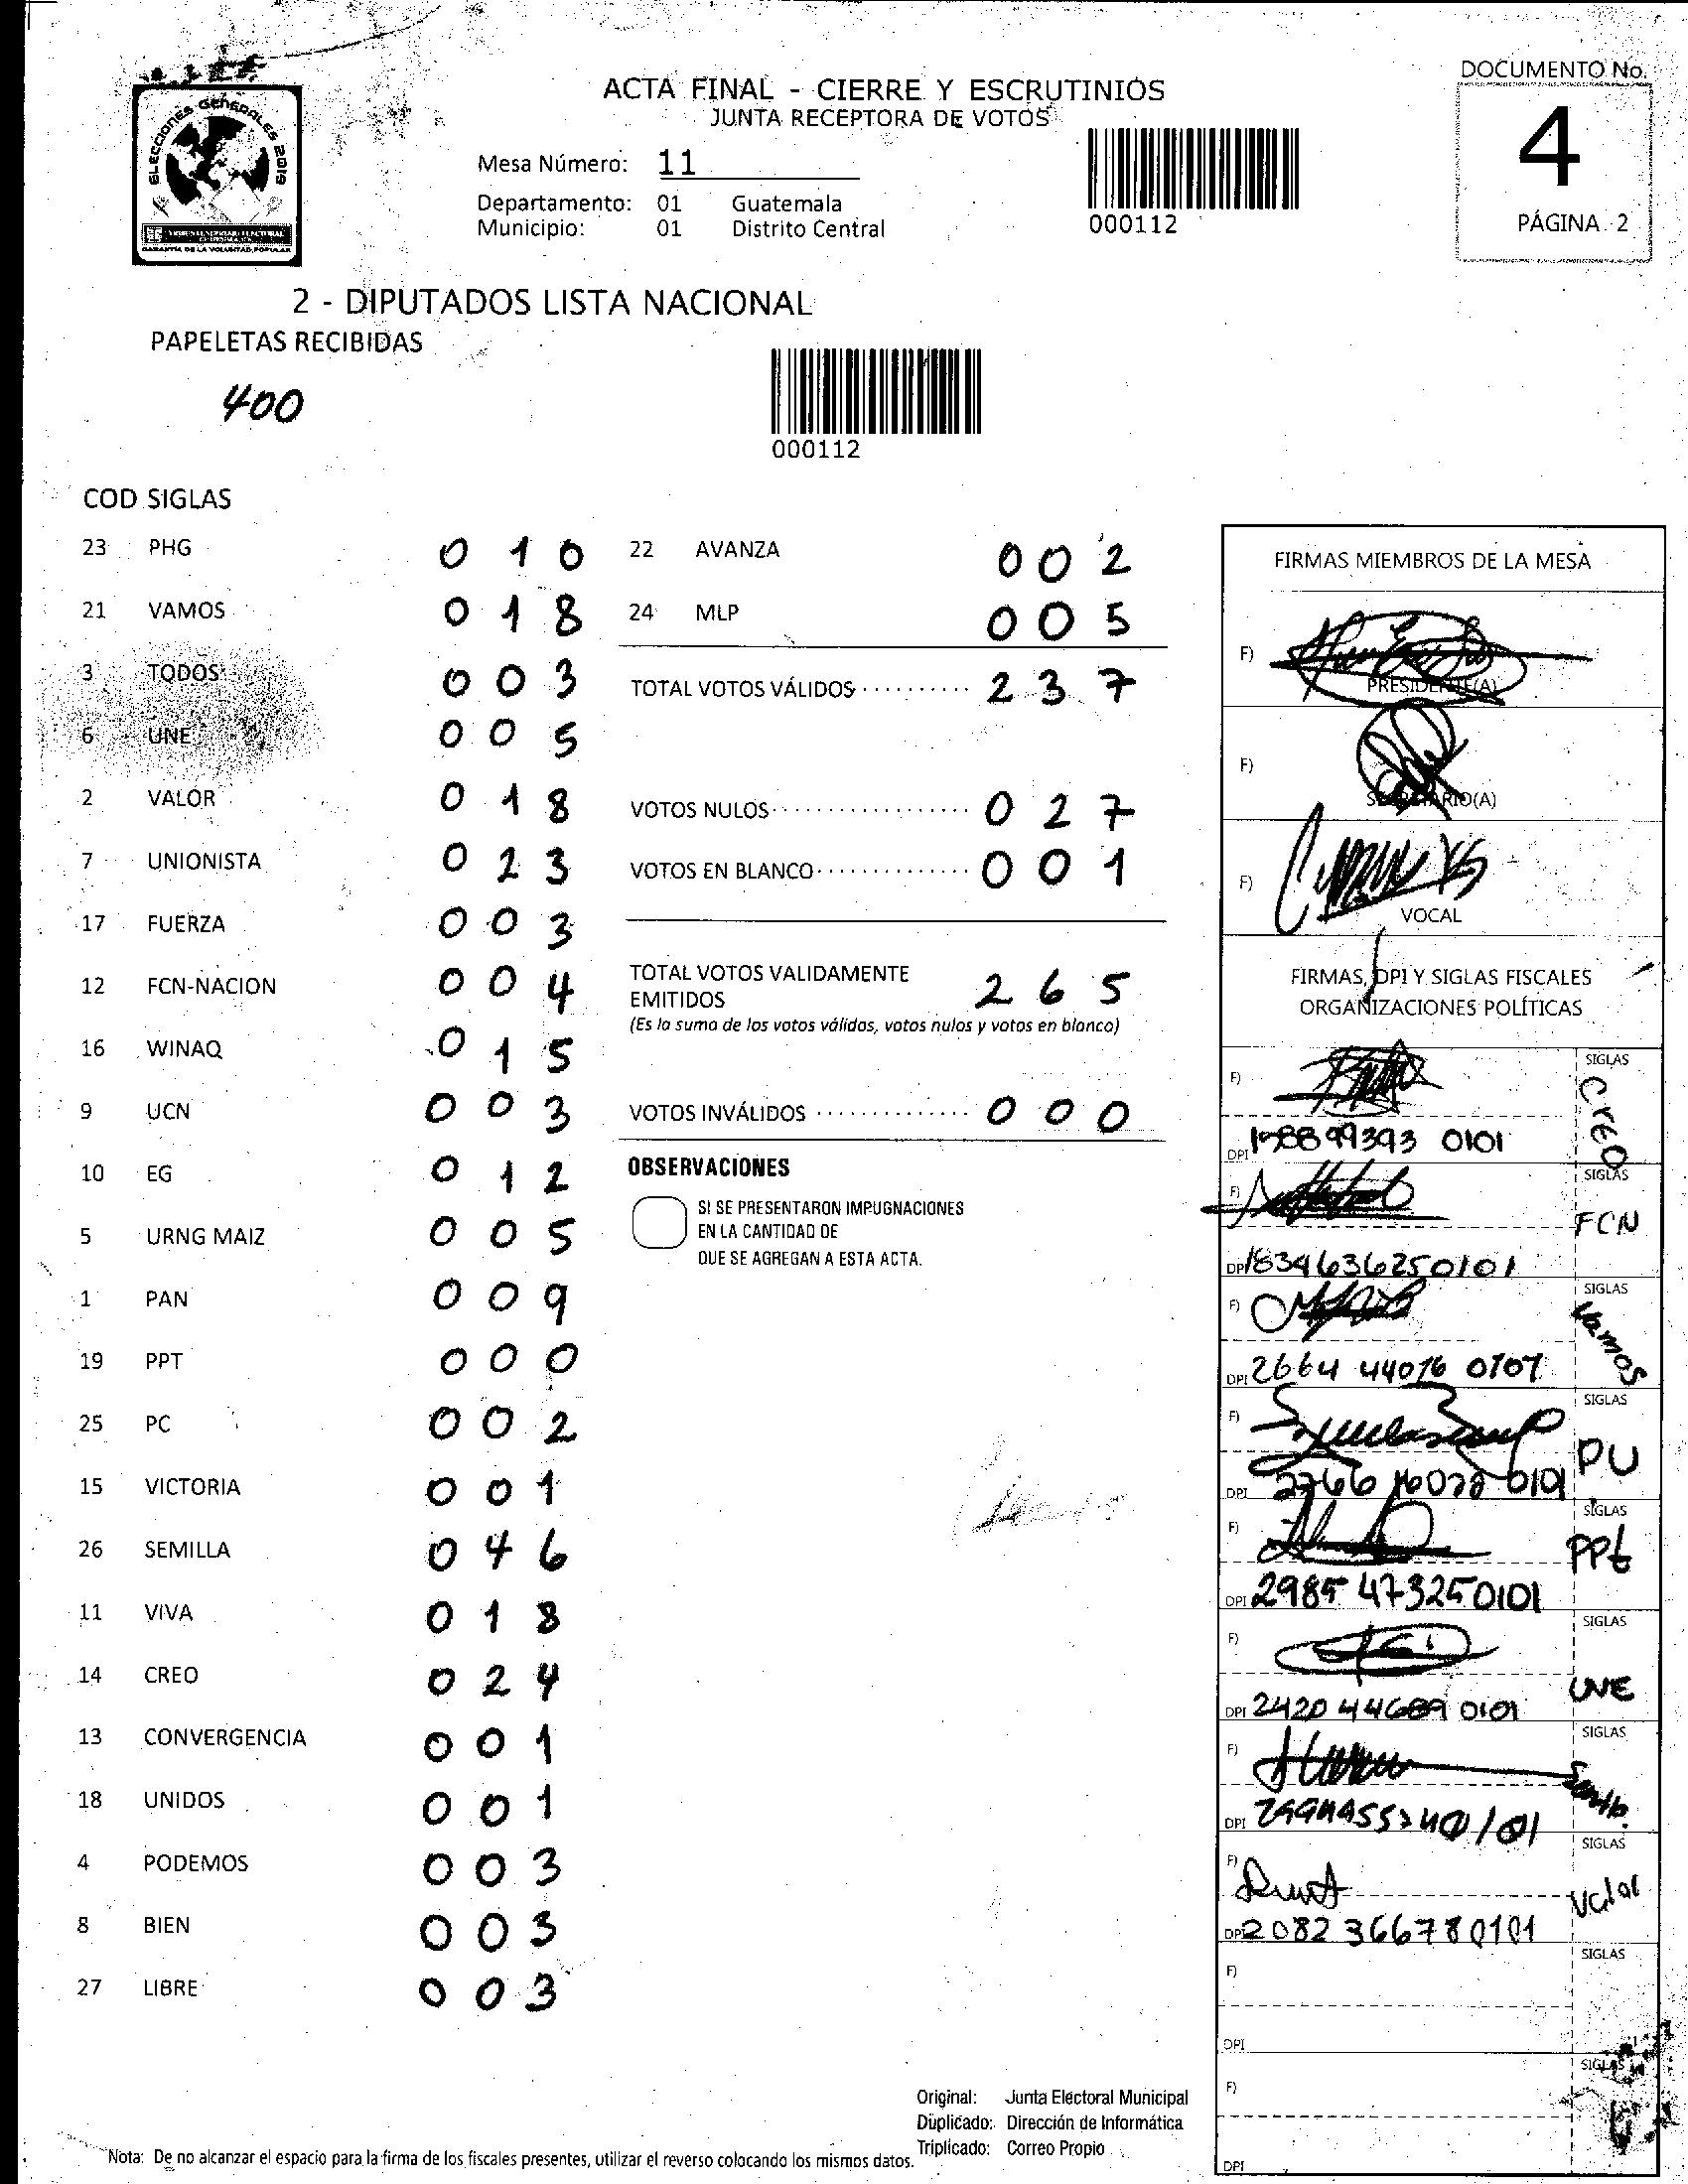 ELECCIONES GENERALES 2019
GARANTÍA DE LA VOLUNTAD POPULAR
ACTA FINAL - CIERRE Y ESCRUTINIOS
JUNTA RECEPTORA DE VOTOS
Mesa Número: 11
Departamento: 01 Guatemala
Municipio: 01 Distrito Central
000112
DOCUMENTO No.
4
PÁGINA 2
2 - DIPUTADOS LISTA NACIONAL
PAPELETAS RECIBIDAS
400
000112
COD SIGLAS
23 PHG 0 1 0
21 VAMOS 0 1 8
3 TODOS 0 0 3
6 UNE 0 0 5
2 VALOR 0 1 8
7 UNIONISTA 0 2 3
17 FUERZA 0 0 3
12 FCN-NACION 0 0 4
16 WINAQ 0 1 5
9 UCN 0 0 3
10 EG 0 1 2
5 URNG MAIZ 0 0 5
1 PAN 0 0 9
19 PPT 0 0 0
25 PC 0 0 2
15 VICTORIA 0 0 1
26 SEMILLA 0 4 6
11 VIVA 0 1 8
14 CREO 0 2 4
13 CONVERGENCIA 0 0 1
18 UNIDOS 0 0 1
4 PODEMOS 0 0 3
8 BIEN 0 0 3
27 LIBRE 0 0 3
22 AVANZA 0 0 2
24 MLP 0 0 5
TOTAL VOTOS VÁLIDOS 2 3 7
VOTOS NULOS 0 2 7
VOTOS EN BLANCO 0 0 1
TOTAL VOTOS VALIDAMENTE
EMITIDOS 2 6 5
(Es la suma de los votos válidos, votos nulos y votos en blanco)
VOTOS INVÁLIDOS 0 0 0
OBSERVACIONES
SI SE PRESENTARON IMPUGNACIONES
EN LA CANTIDAD DE
QUE SE AGREGAN A ESTA ACTA.
FIRMAS MIEMBROS DE LA MESA
F)
PRESIDENTE(A)
F)
SECRETARIO(A)
F)
VOCAL
FIRMAS, DPI Y SIGLAS FISCALES
ORGANIZACIONES POLÍTICAS
F) SIGLAS
Creo
DPI 99393 0101
F) SIGLAS
FCN
DPI 1834636250101
F) SIGLAS
Vamos
DPI 2664 44076 0707
F) SIGLAS
PU
DPI 0101
F) SIGLAS
PPt
DPI 2985 473250101
F) SIGLAS
UNE
DPI 2420 44689 0101
F) SIGLAS
DPI
F) SIGLAS
Valor
DPI 2082 366780101
F) SIGLAS
DPI
F) SIGLAS
DPI
Original: Junta Electoral Municipal
Duplicado: Dirección de Informática
Triplicado: Correo Propio
Nota: De no alcanzar el espacio para la firma de los fiscales presentes, utilizar el reverso colocando los mismos datos.